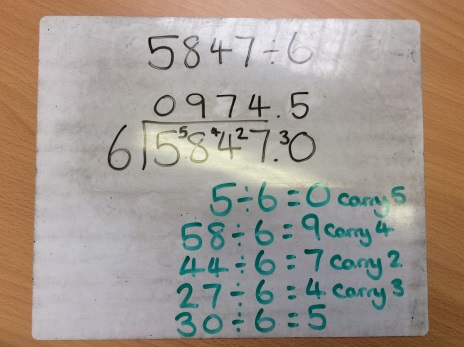 5847÷6
0974.5
6 5⁵8⁴4²7.³0
5÷6=0 carry 5
58÷6=9 carry 4
44÷6=7 carry 2
27÷6=4 carry 3
30÷6=5